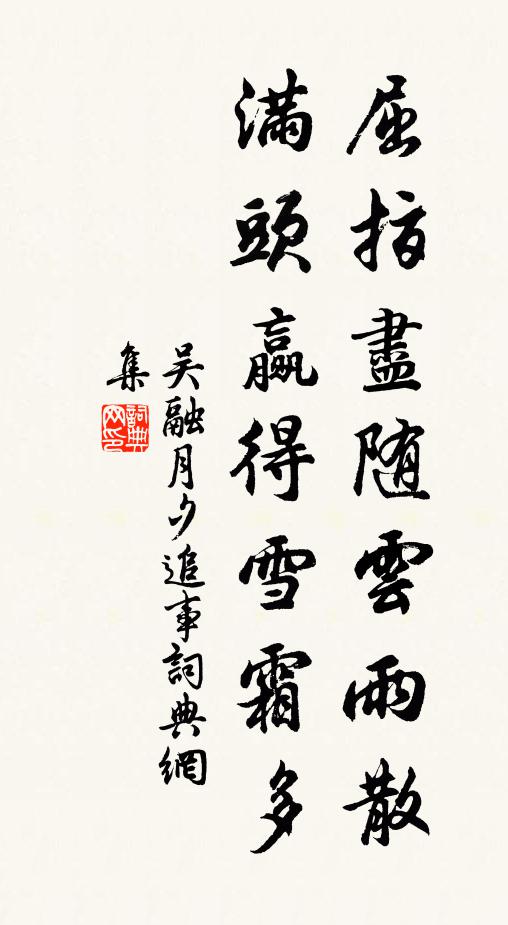 屈指盡随雲雨散
滿頭贏得雪霜多
吴融月夕追事詞典網
集
詞典
网印